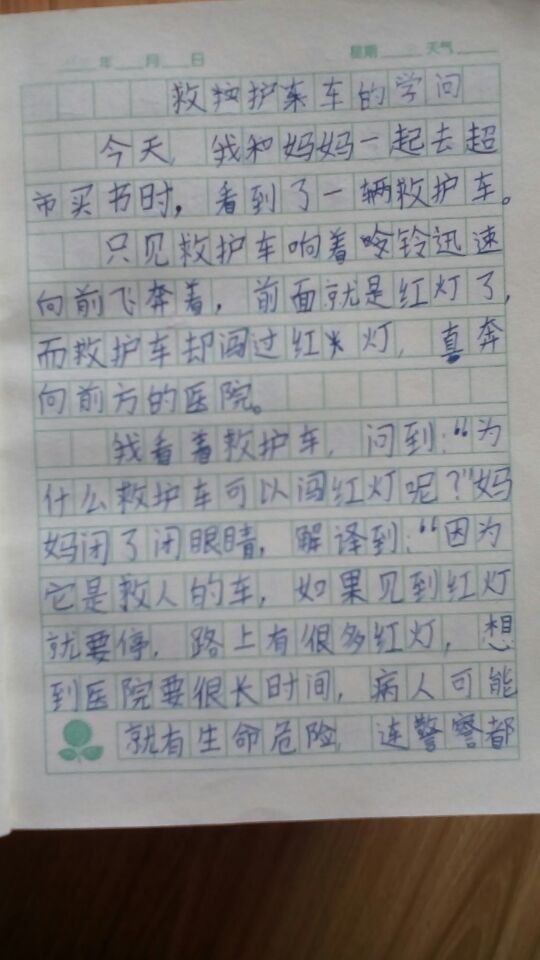 年 月 日 星期 天气
救护车的学问
今天，我和妈妈一起去超
市买书时，看到了一辆救护车。
只见救护车响着铃铃迅速
向前飞奔着，前面就是红灯了，
而救护车却闯过红灯，真奔
向前方的医院。
我看着救护车，问到：“为
什么救护车可以闯红灯呢？”妈
妈闭了闭眼睛，解译到：“因为
它是救人的车，如果见到红灯
就要停，路上有很多红灯，想
到医院要很长时间，病人可能
就有生命危险，连警察都